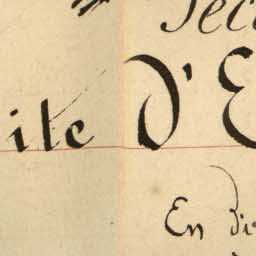 Sec
ite d'E
En di